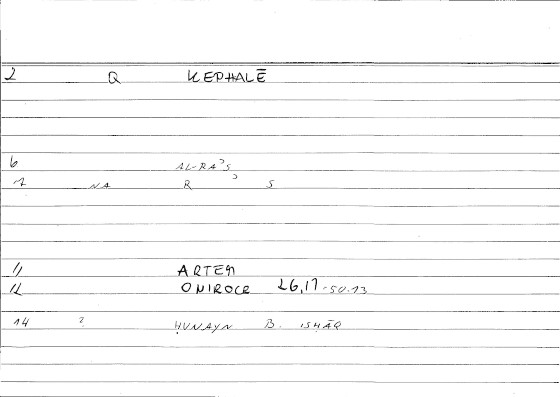 2 Q KEPHALĒ
6 AL-RAʾS
7 NA R ʾ S
11 ARTEM
12 ONIROCR 26,17-50.13
14 ? ḤUNAYN B. ISḤĀQ